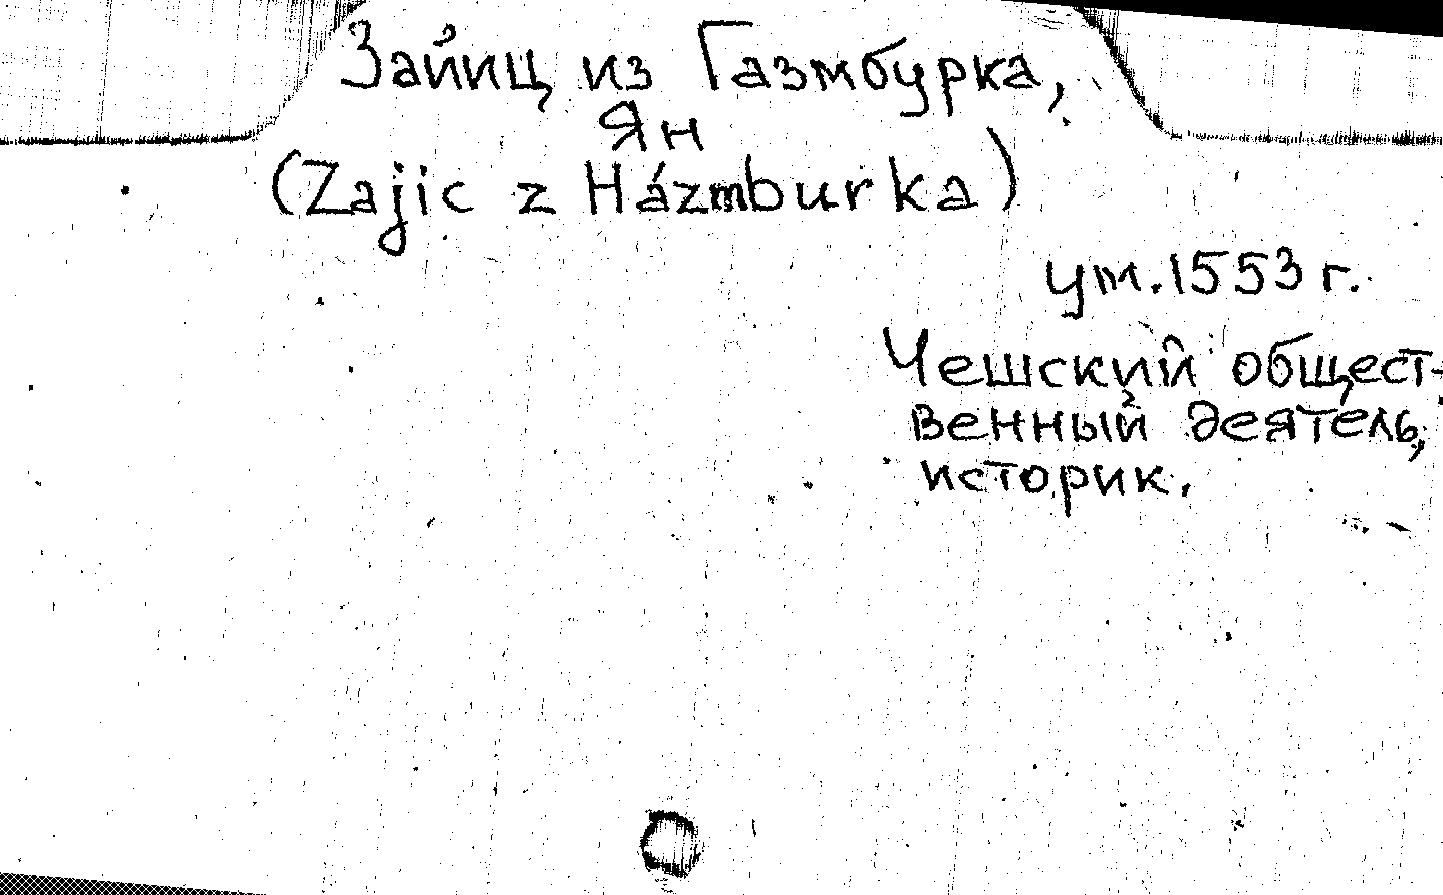 Зайиц из Газмбурка,
Ян
(Zajic z Házmburka)
ум. 1553 г.
Чешский общест-
венный деятель,
историк.